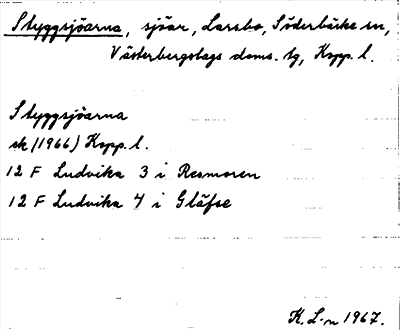 Styggsjöarna, sjöar, Larsbo, Söderbärke sn,
Västerbergslags doms. tg, Kopp. l.
Styggsjöarna
ek (1966) Kopp. l.
12 F Ludvika 3 i Rasmoren
12 F Ludvika 4 i Gläfse
K. L-n 1967.